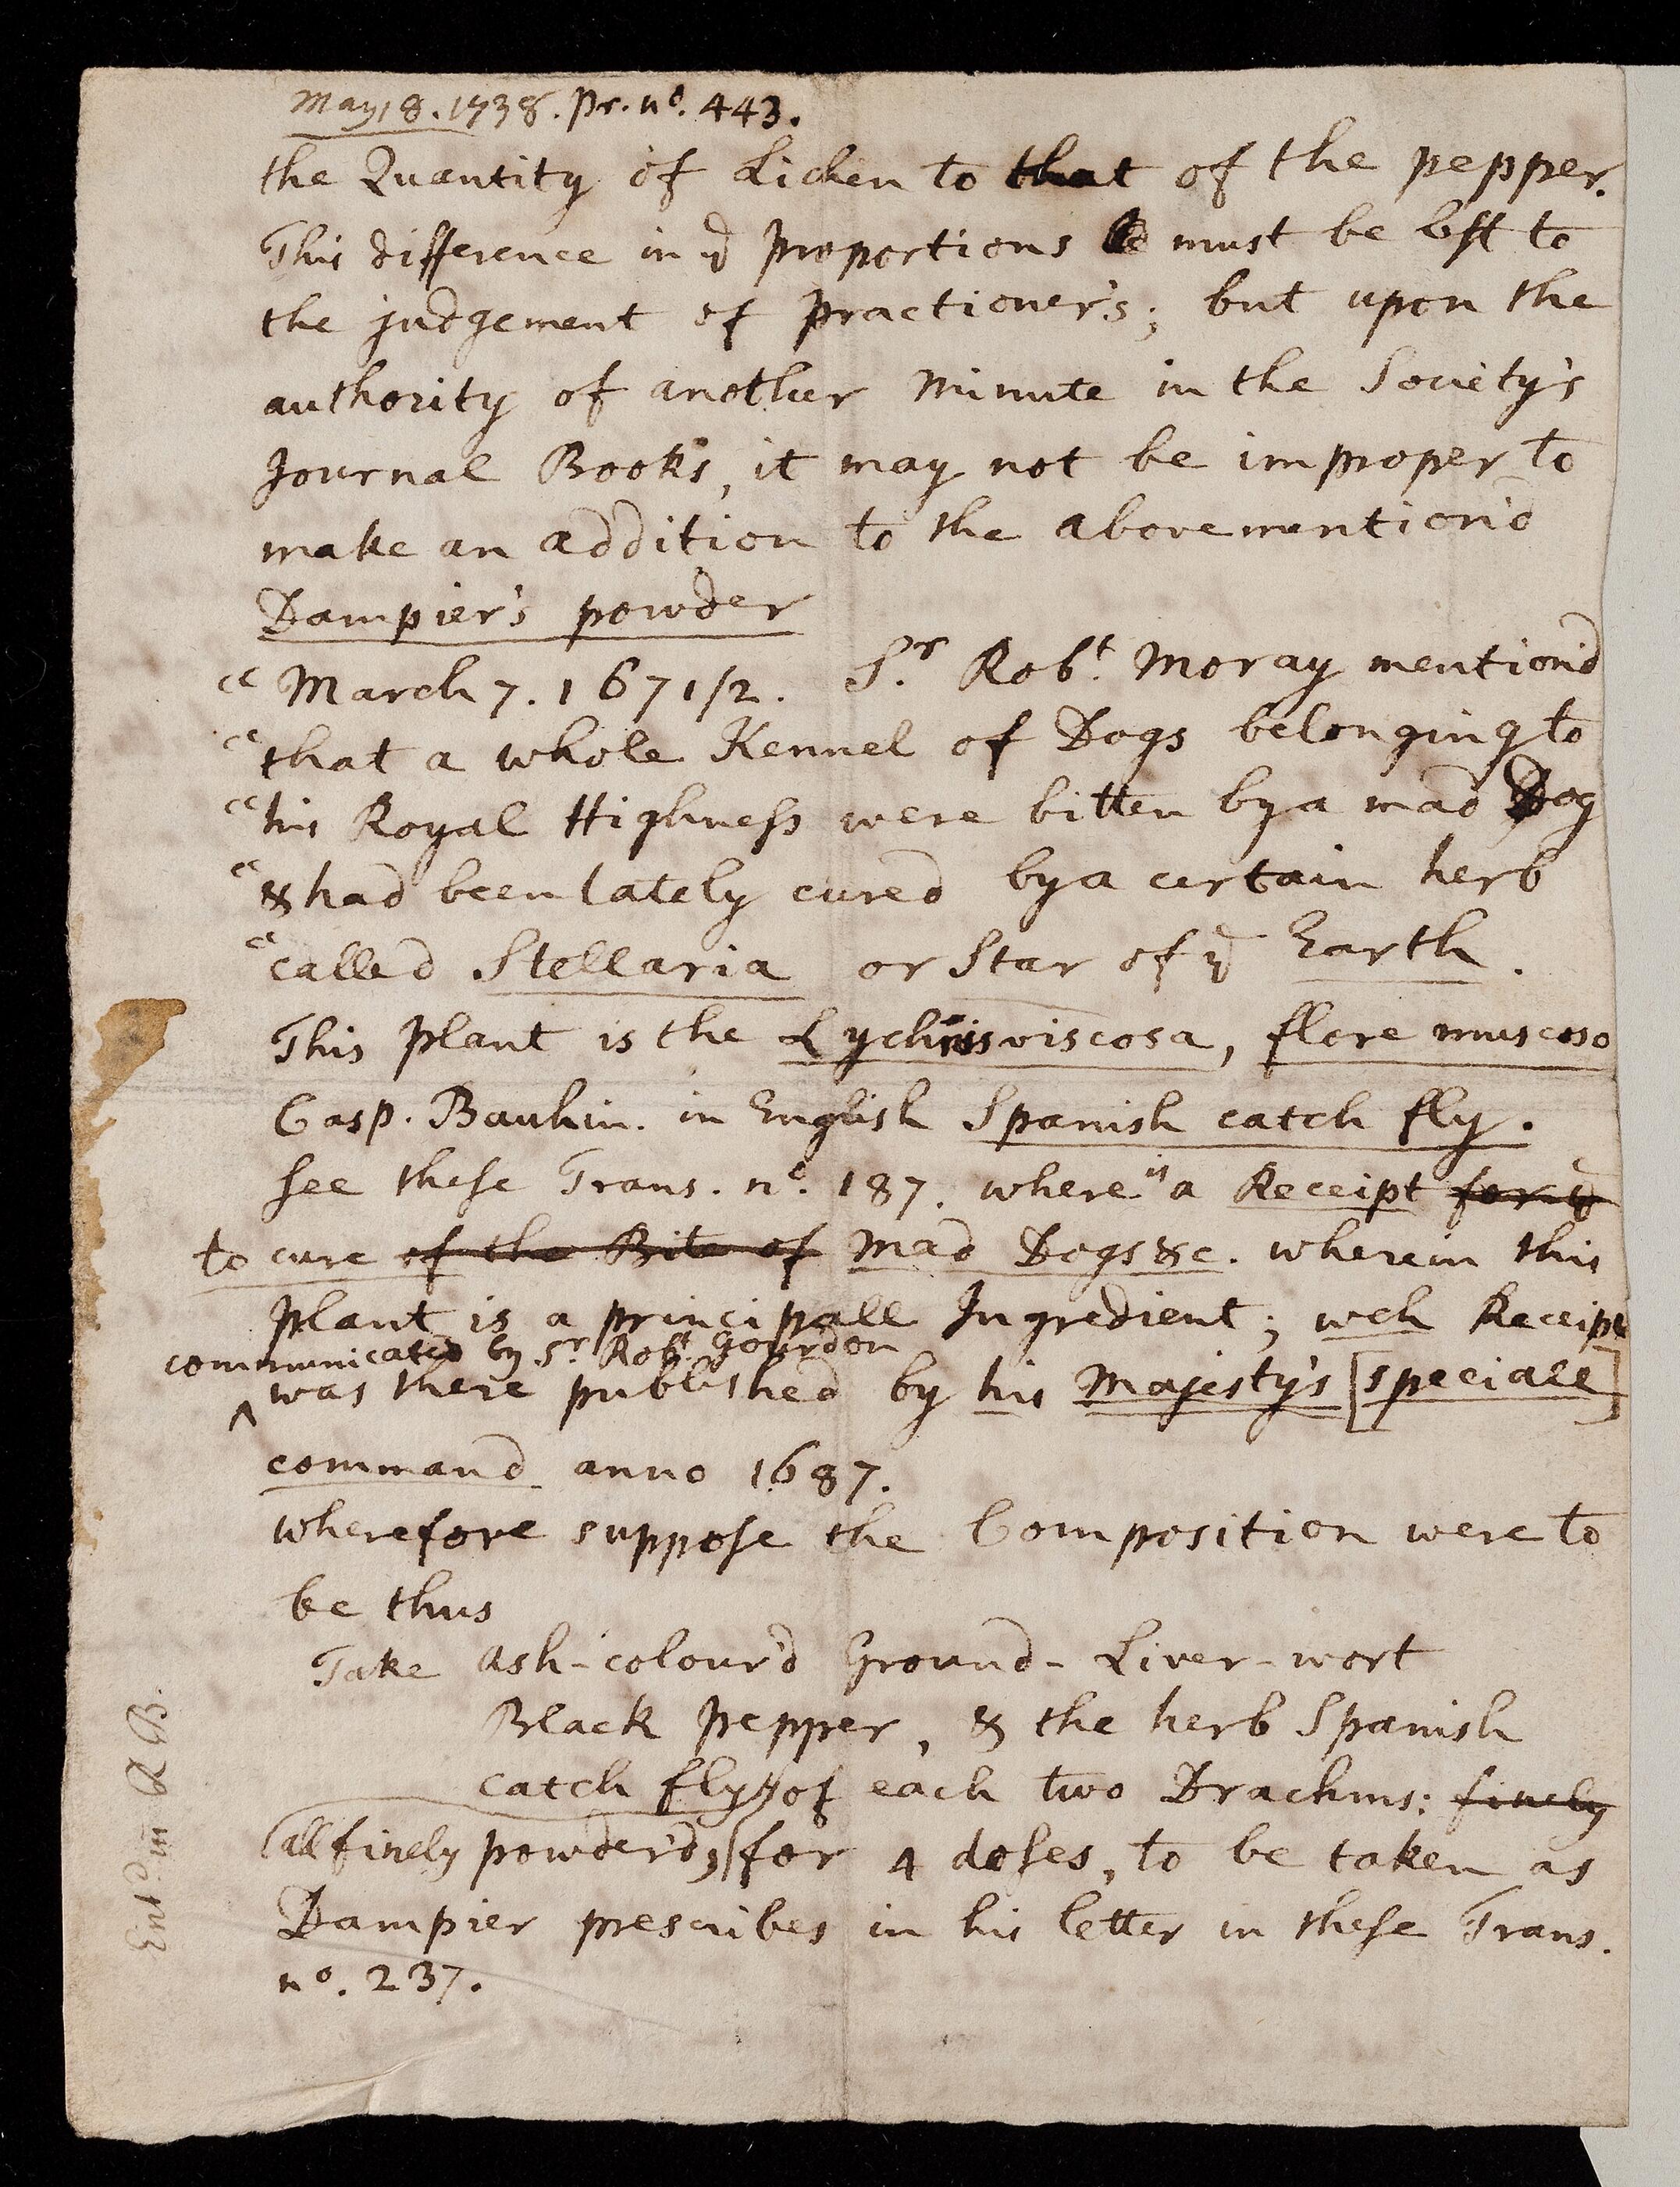 May 18. 1738. pr. no. 443.
the Quantity of Lichen to that of the pepper.
This difference in ye proportions must be left to
the judgement of practioner's; but upon the
authority of another Minute in the Society's
Journal Books, it may not be improper to
make an addition to the abovemention'd
Dampier's powder
"March 7. 1671/2. Sr. Robt. Moray mention'd
"that a whole Kennel of Dogs belonging to
"his Royal Highness were bitten by a mad Dog
"& had been lately cured by a certain herb
"called Stellaria or Star of ye Earth.
This plant is the Lychnis viscosa, flore muscoso
Casp. Bauhin. in English Spanish catch fly.
See these Trans. no. 187. where is a Receipt for ye
to cure of the Bite of Mad Dogs &c. wherein this
plant is a principall Ingredient; wch Receipt
communicated by Sr. Robt. Gourdon
^ was there published by his Majesty's [speciall]
command anno 1687.
wherefore suppose the Composition were to
be thus
Take Ash-colour'd Ground-Liver-wort
Black pepper, & the herb Spanish
catch fly, of each two Drachms: finely
(all finely powder'd,) for 4 doses, to be taken as
Dampier prescribes in his letter in these Trans.
no. 237.
Entd. in R B.